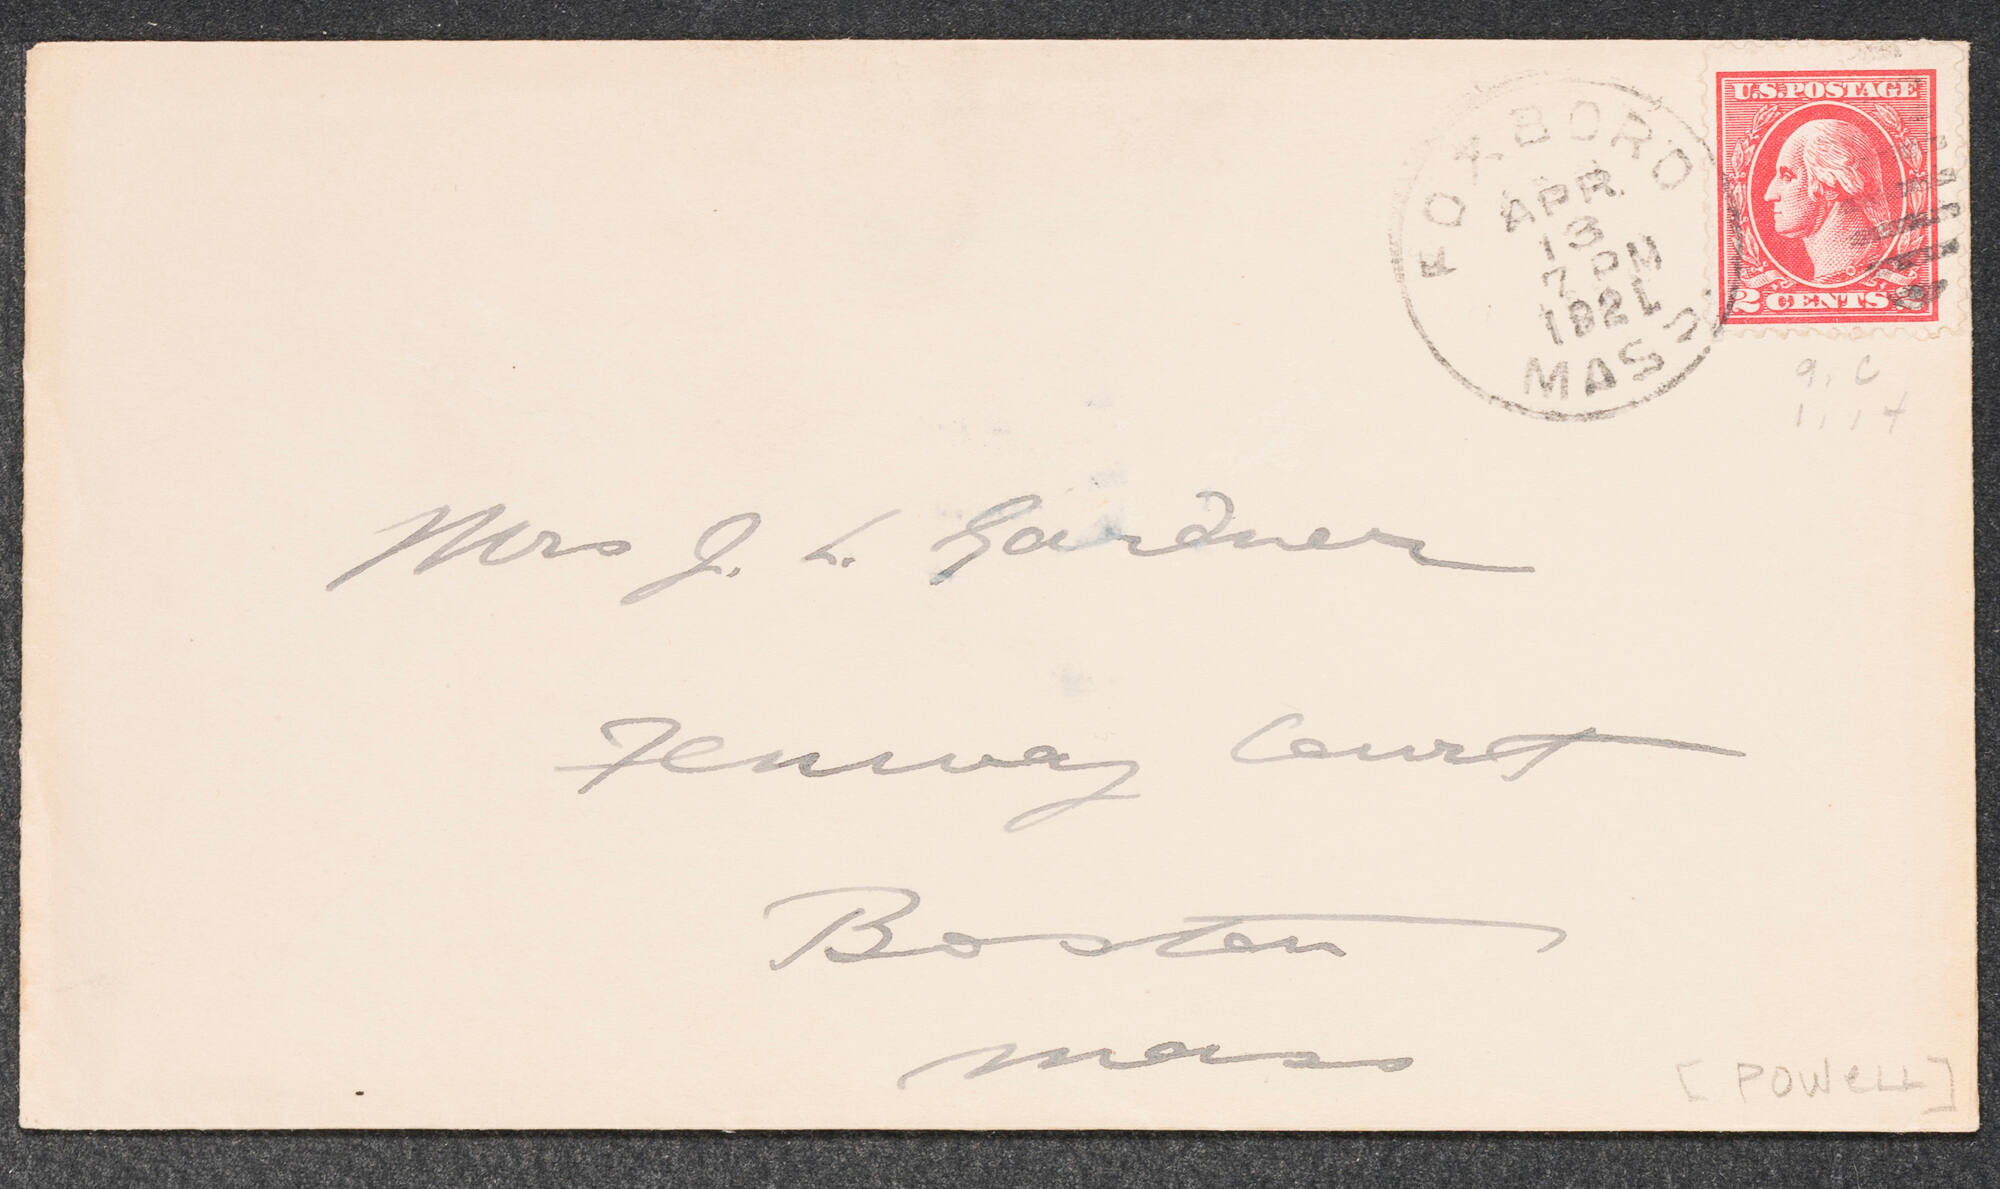 FOXBORO
APR
13
7 PM
1921
MASS
U.S. POSTAGE
2 CENTS 2
Mrs J. L. Gardner
Fenway Court
Boston
Mass
[POWELL]